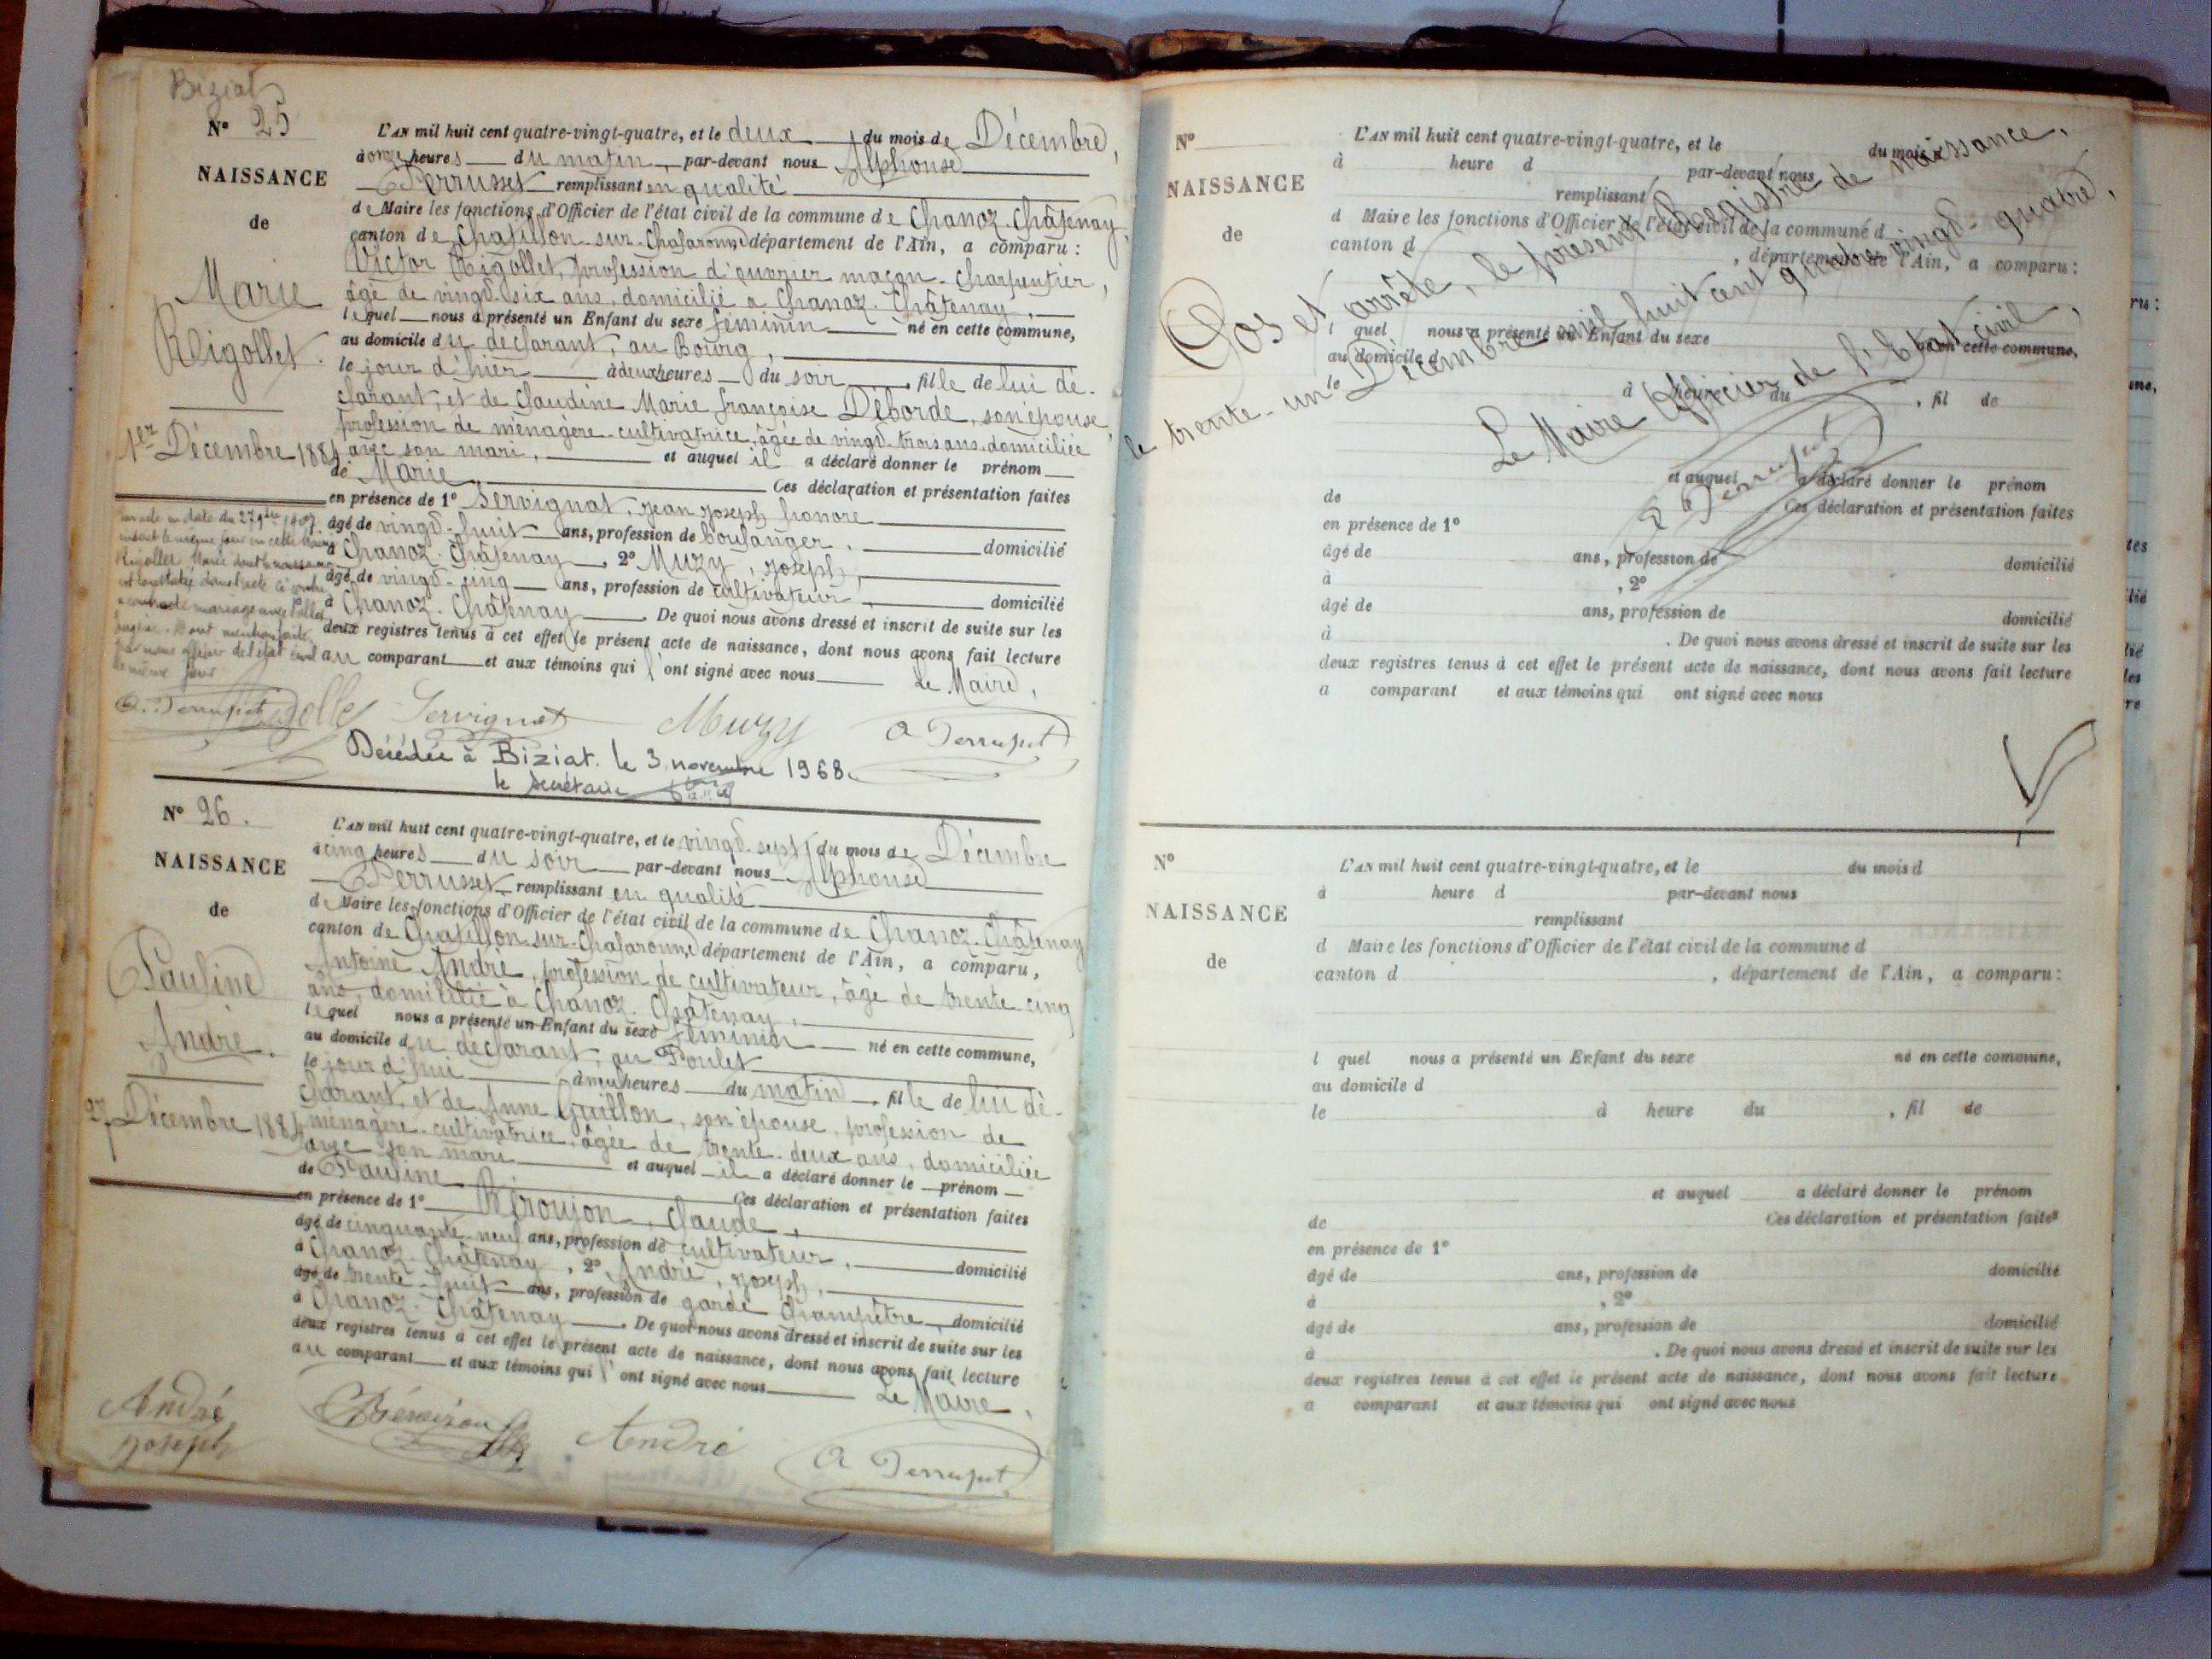 Biziat
N° 25
NAISSANCE
de
Marie
Rigollet.
1er Décembre 1884
L'AN mil huit cent quatre-vingt-quatre, et le deux du mois de Décembre,
à onze heures du matin, par-devant nous Alphonse
Perrusset remplissant en qualité
de Maire les fonctions d'Officier de l'état civil de la commune de Chanoz-Châtenay,
canton de Chatillon-sur-Chalaronne, département de l'Ain, a comparu :
Victor Rigollet, profession d'ouvrier maçon-charpentier,
âgé de vingt-six ans, domicilié à Chanoz-Châtenay,
lequel nous a présenté un Enfant du sexe féminin né en cette commune,
au domicile du déclarant, au Bourg,
le jour d'hier à deux heures du soir, fille de lui dé-
clarant, et de Claudine Marie françoise Déborde, son épouse,
profession de ménagère-cultivatrice, âgée de vingt-trois ans, domiciliée
avec son mari, et auquel il a déclaré donner le prénom
de Marie Ces déclaration et présentation faites
en présence de 1° Servignat, Jean Joseph honoré
âgé de vingt-huit ans, profession de boulanger, domicilié
à Chanoz-Châtenay, 2° Muzy, Joseph,
âgé de vingt-cinq ans, profession de cultivateur, domicilié
à Chanoz-Châtenay. De quoi nous avons dressé et inscrit de suite sur les
deux registres tenus à cet effet le présent acte de naissance, dont nous avons fait lecture
au comparant et aux témoins qui l'ont signé avec nous
Le Maire,
en date du 27
inscrit le même jour en cette
Rigollet Marie dont la naissance
est constatée dans l'acte ci contre
a contracté mariage avec
Dont mention faite
par nous officier de l'état civil
le même jour
A. Perrusset Servignat Muzy A Perrusset
Décédée à Biziat le 3 novembre 1968
le secrétaire
N° 26.
NAISSANCE
de
Pauline
André.
27 Décembre 1884
L'AN mil huit cent quatre-vingt-quatre, et le vingt-sept du mois de Décembre
à cinq heures du soir par-devant nous Alphonse
Perrusset remplissant en qualité
de Maire les fonctions d'Officier de l'état civil de la commune de Chanoz-Châtenay
canton de Chatillon-sur-Chalaronne, département de l'Ain, a comparu,
Antoine André, profession de cultivateur, âgé de trente-cinq
ans, domicilié à Chanoz-Châtenay,
lequel nous a présenté un Enfant du sexe féminin né en cette commune,
au domicile du déclarant, au Poulet
le jour d'hui à heures du matin, fille de lui dé-
clarant, et de Anne Guillon, son épouse, profession de
ménagère-cultivatrice, âgée de trente-deux ans, domiciliée
avec son mari et auquel il a déclaré donner le prénom
de Pauline Ces déclaration et présentation faites
en présence de 1° Claude,
âgé de cinquante-neuf ans, profession de cultivateur, domicilié
à Chanoz-Châtenay, 2° André, Joseph,
âgé de trente-huit ans, profession de garde champêtre, domicilié
à Chanoz-Châtenay. De quoi nous avons dressé et inscrit de suite sur les
deux registres tenus à cet effet le présent acte de naissance, dont nous avons fait lecture
au comparant et aux témoins qui l'ont signé avec nous
Le Maire,
André
Joseph
André A Perrusset
N°
NAISSANCE
de
L'AN mil huit cent quatre-vingt-quatre, et le du mois d
à heure d par-devant nous
remplissant
d Maire les fonctions d'Officier de l'état civil de la commune d
canton d , département de l'Ain, a comparu :
l quel nous a présenté un Enfant du sexe né en cette commune,
au domicile d
le à heure du , fil de
et auquel a déclaré donner le prénom
de Ces déclaration et présentation faites
en présence de 1°
âgé de ans, profession de domicilié
à , 2°
âgé de ans, profession de domicilié
à . De quoi nous avons dressé et inscrit de suite sur les
deux registres tenus à cet effet le présent acte de naissance, dont nous avons fait lecture
a comparant et aux témoins qui ont signé avec nous
Clos et arrêté, le présent Registre de naissance,
le trente-un Décembre mil huit cent quatre-vingt-quatre,
Le Maire Officier de l'Etat civil,
A Perrusset
N°
NAISSANCE
de
L'AN mil huit cent quatre-vingt-quatre, et le du mois d
à heure d par-devant nous
remplissant
d Maire les fonctions d'Officier de l'état civil de la commune d
canton d , département de l'Ain, a comparu :
l quel nous a présenté un Enfant du sexe né en cette commune,
au domicile d
le à heure du , fil de
et auquel a déclaré donner le prénom
de Ces déclaration et présentation faites
en présence de 1°
âgé de ans, profession de domicilié
à , 2°
âgé de ans, profession de domicilié
à . De quoi nous avons dressé et inscrit de suite sur les
deux registres tenus à cet effet le présent acte de naissance, dont nous avons fait lecture
a comparant et aux témoins qui ont signé avec nous